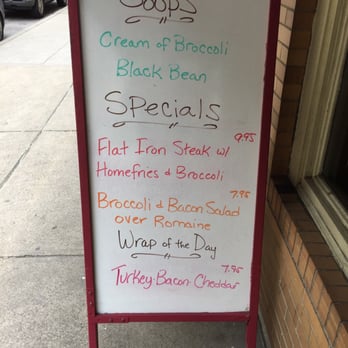 Soups
Cream of Broccoli
Black Bean
Specials
9.95
Flat Iron Steak w/
Homefries & Broccoli
7.95
Broccoli & Bacon Salad
over Romaine
Wrap of the Day
7.95
Turkey-Bacon-Cheddar